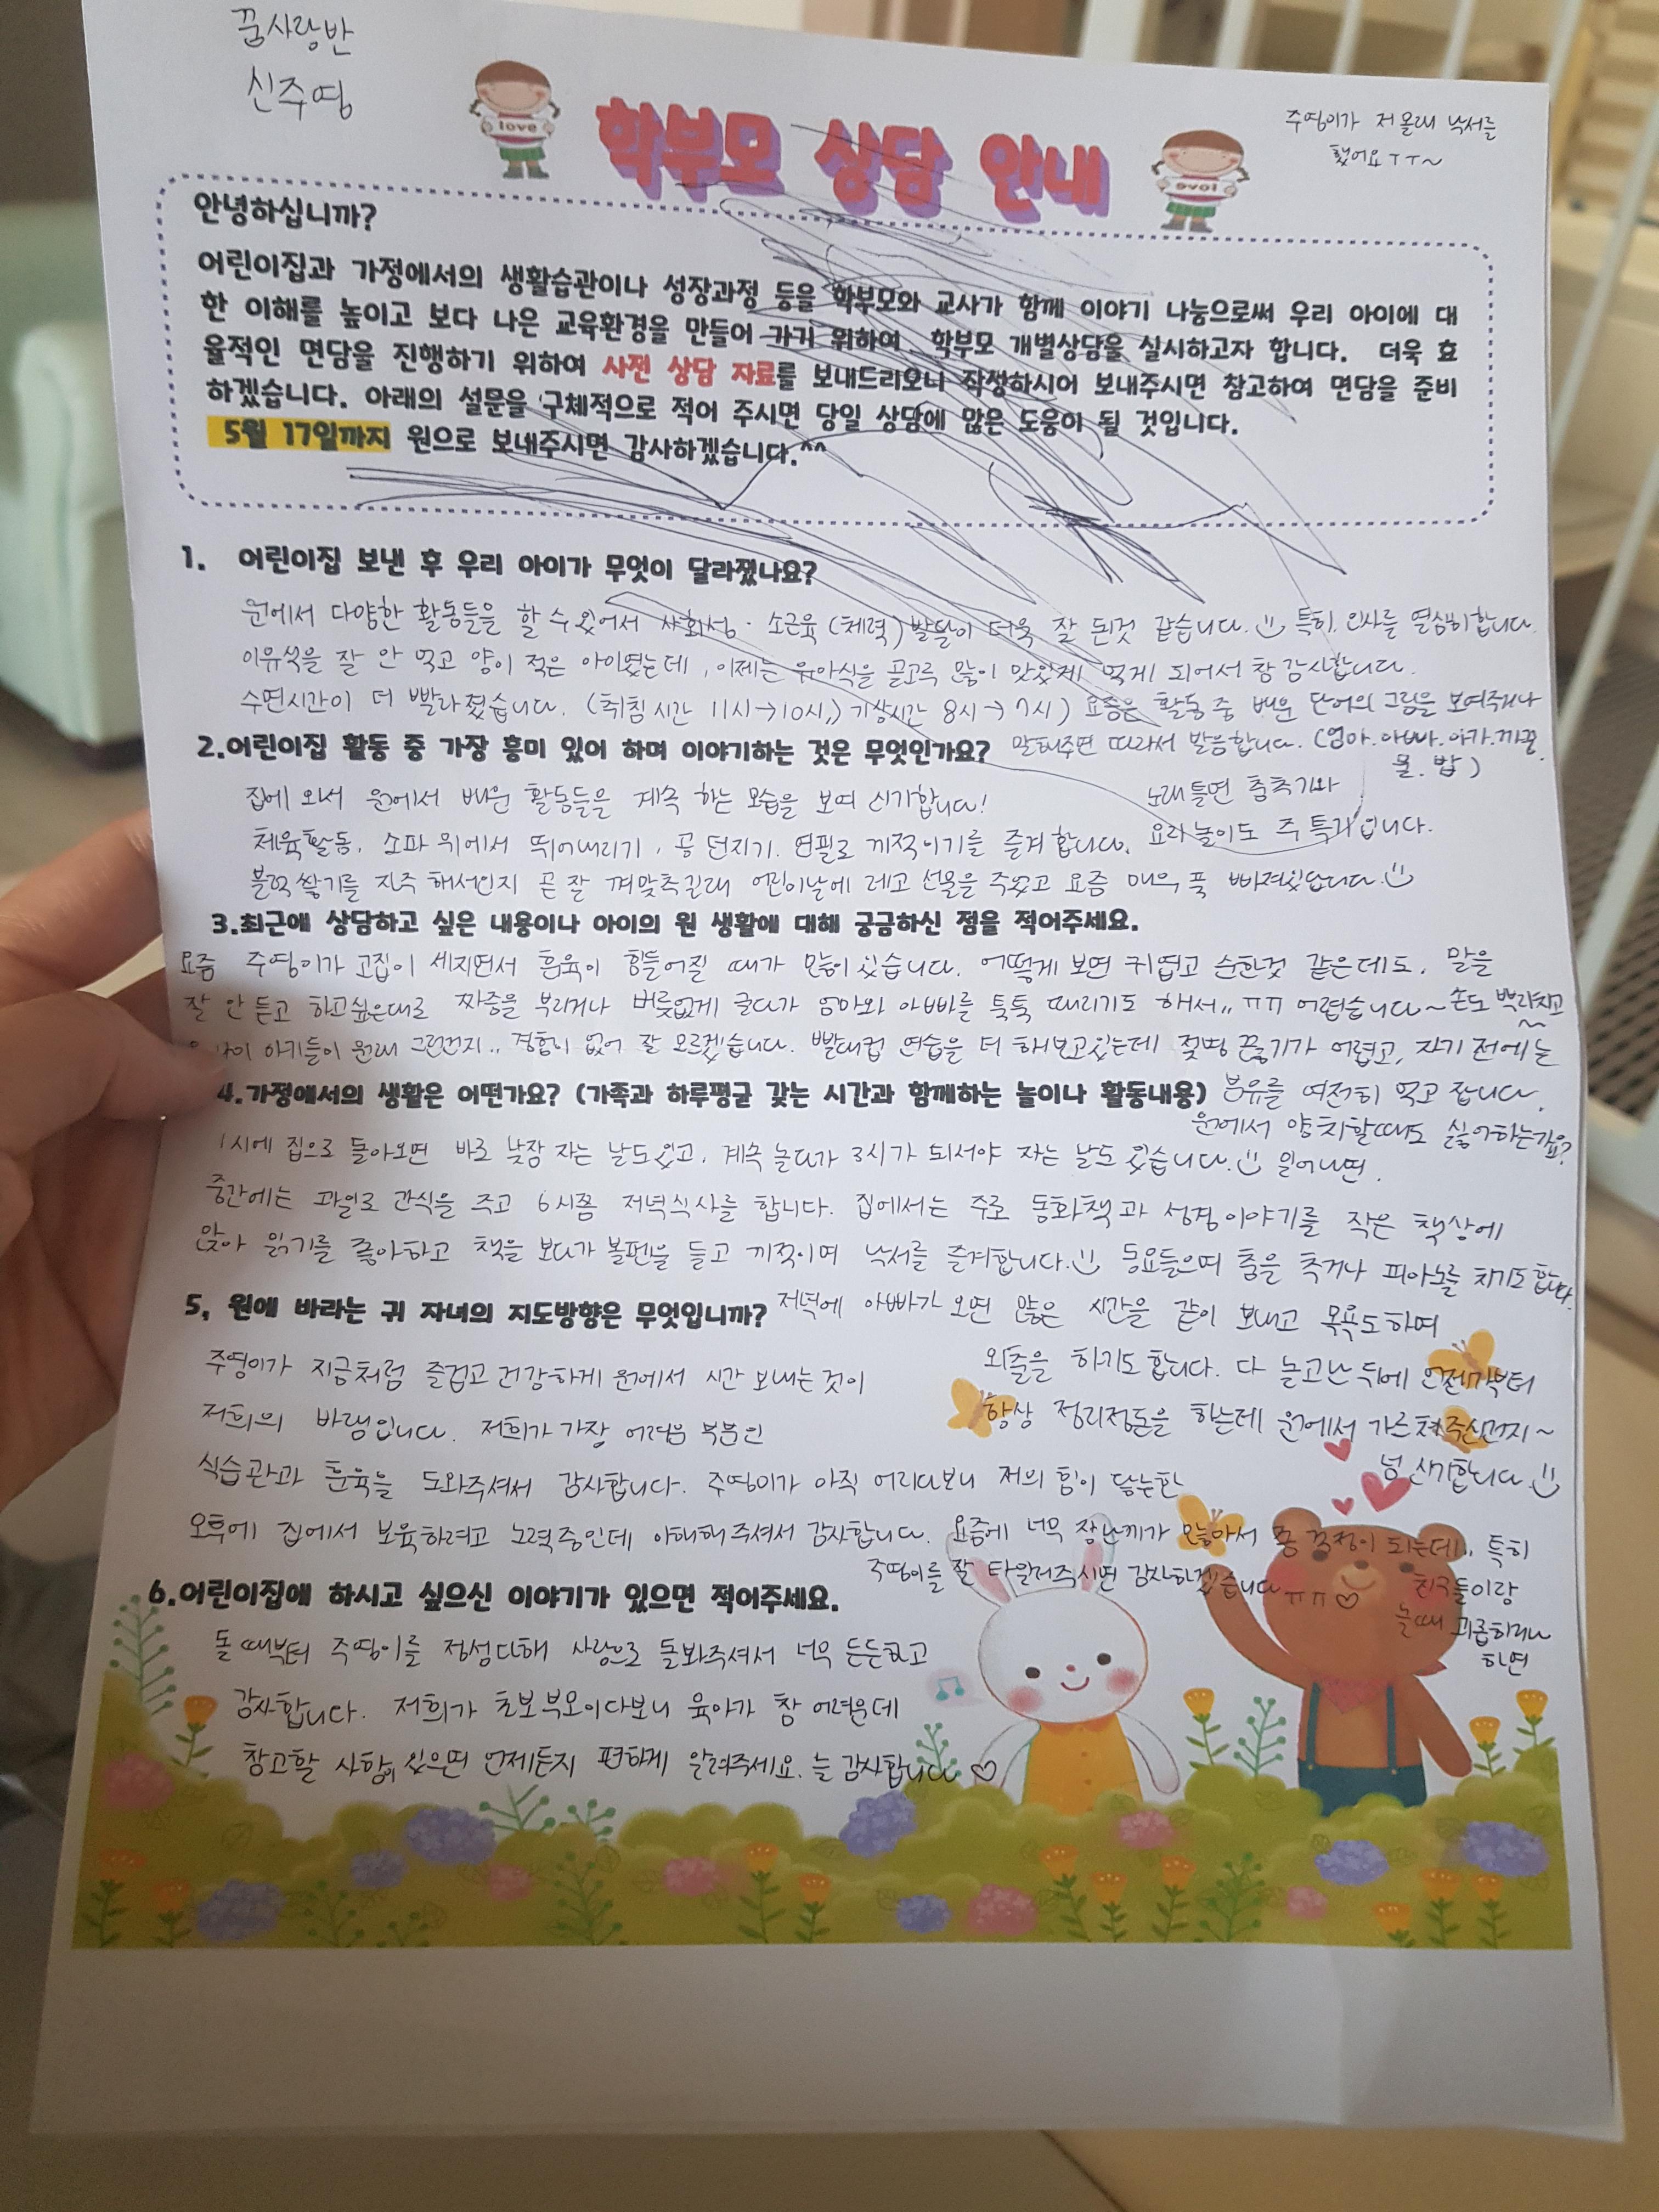 꿈사랑반
신주영
주영이가 저 몰래 낙서를
했어요ㅜㅜ~
love
학부모 상담 안내
love
안녕하십니까?
어린이집과 가정에서의 생활습관이나 성장과정 등을 학부모와 교사가 함께 이야기 나눔으로써 우리 아이에 대
한 이해를 높이고 보다 나은 교육환경을 만들어 가기 위하여, 학부모 개별상담을 실시하고자 합니다. 더욱 효
율적인 면담을 진행하기 위하여 사전 상담 자료를 보내드리오니 작성하시어 보내주시면 참고하여 면담을 준비
하겠습니다. 아래의 설문을 구체적으로 적어 주시면 당일 상담에 많은 도움이 될 것입니다.
5월 17일까지 원으로 보내주시면 감사하겠습니다.^^
1. 어린이집 보낸 후 우리 아이가 무엇이 달라졌나요?
원에서 다양한 활동들을 할 수 있어서 사회성·소근육(체력)발달이 더욱 잘 된것 같습니다. 특히, 인사를 열심히합니다.
이유식을 잘 안 먹고 양이 적은 아이였는데, 이제는 유아식을 골고루 많이 맛있게 먹게 되어서 참 감사합니다.
수면시간이 더 빨라졌습니다. (취침시간 11시→10시, 기상시간 8시→7시) 요즘은 활동 중 배운 단어의 그림을 보여주거나
말해주면 따라서 발음합니다. (엄마.아빠.아가.까꿍.
물.밥)
2.어린이집 활동 중 가장 흥미 있어 하며 이야기하는 것은 무엇인가요?
집에 와서 원에서 배운 활동들을 계속 하는 모습을 보여 신기합니다!
체육활동, 소파 위에서 뛰어내리기, 공 던지기. 연필로 끼적이기를 즐겨 합니다.
노래 틀면 춤추기와
요리놀이도 주 특기입니다.
블럭 쌓기를 자주 해서인지 곧 잘 껴맞추길래 어린이날에 레고 선물을 주었고 요즘 매우 푹 빠져있답니다.
3.최근에 상담하고 싶은 내용이나 아이의 원 생활에 대해 궁금하신 점을 적어주세요.
요즘 주영이가 고집이 세지면서 훈육이 힘들어질 때가 많이 있습니다. 어떻게 보면 귀엽고 순한것 같은데도, 말을
잘 안 듣고 하고싶은대로 짜증을 부리거나 버릇없게 굴다가 엄마와 아빠를 툭툭 때리기도 해서.. ㅠㅠ 어렵습니다~ 손도 뿌리치고~
아기들이 원래 그런건지.. 경험이 없어 잘 모르겠습니다. 빨대컵 연습을 더 해보고있는데 젖병 끊기가 어렵고, 자기 전에는
분유를 여전히 먹고 잡니다.
원에서 양치할때도 싫어하는가요?
4.가정에서의 생활은 어떤가요? (가족과 하루평균 갖는 시간과 함께하는 놀이나 활동내용)
1시에 집으로 돌아오면 바로 낮잠 자는 날도있고, 계속 놀다가 3시가 되서야 자는 날도 있습니다. 일어나면,
중간에는 과일로 간식을 주고 6시쯤 저녁식사를 합니다. 집에서는 주로 동화책과 성경이야기를 작은 책상에
앉아 읽기를 좋아하고 책을 보다가 볼펜을 들고 끼적이며 낙서를 즐겨합니다. 동요들으며 춤을 추거나 피아노를 치기도 합니다.
저녁에 아빠가 오면 많은 시간을 같이 보내고 목욕도하며
외출을 하기도 합니다. 다 놀고난 뒤에 언젠가부터
항상 정리정돈을 하는데 원에서 가르쳐주신건지~
넘 신기합니다
5, 원에 바라는 귀 자녀의 지도방향은 무엇입니까?
주영이가 지금처럼 즐겁고 건강하게 원에서 시간 보내는것이
저희의 바램입니다. 저희가 가장 어려운 부분인
식습관과 훈육을 도와주셔서 감사합니다. 주영이가 아직 어리다보니 저의 힘이 닿는한
오후에 집에서 보육하려고 노력중인데 이해해주셔서 감사합니다. 요즘에 너무 장난끼가 많아서 쫌 걱정이 되는데.. 특히
친구들이랑
놀때 괴롭히려
하면
주영이를 잘 타일러주시면 감사하겠습니다ㅠㅠ♡
6.어린이집에 하시고 싶으신 이야기가 있으면 적어주세요.
돌 때부터 주영이를 정성다해 사랑으로 돌봐주셔서 너무 든든하고
감사합니다. 저희가 초보부모이다보니 육아가 참 어려운데
참고할 사항이 있으면 언제든지 편하게 알려주세요. 늘 감사합니다♡